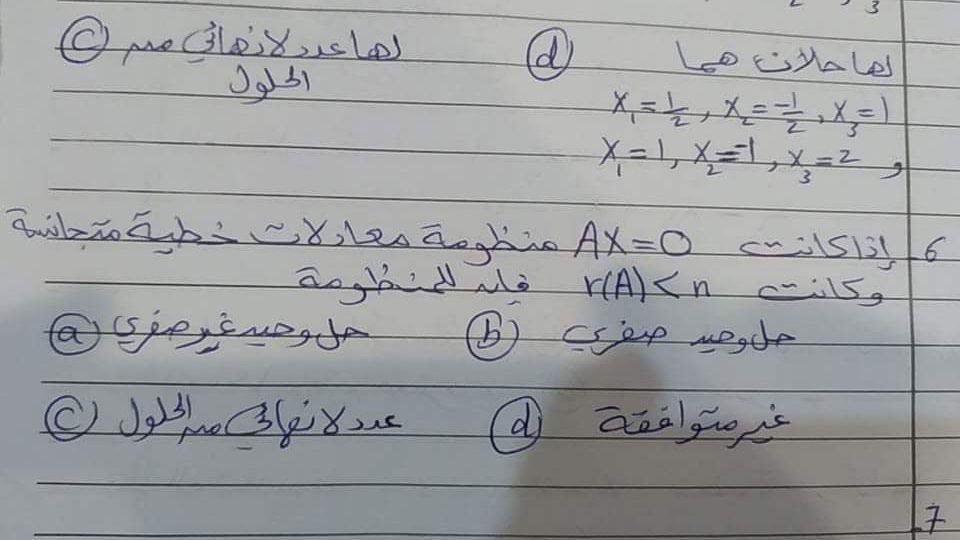 2 , 3
لها عدد لانهائي من (c) لها حلان هما (d)
الحلول
x₁ = 1/2 , x₂ = -1/2 , x₃ = 1
x₁ = 1 , x₂ = -1 , x₃ = 2 و
6- إذا كانت AX = 0 منظومة معادلات خطية متجانسة
وكانت r(A) < n فإن للمنظومة
حل وحيد غير صفري (a) حل وحيد صفري (b)
عدد لانهائي من الحلول (c) غير متوافقة (d)
7-